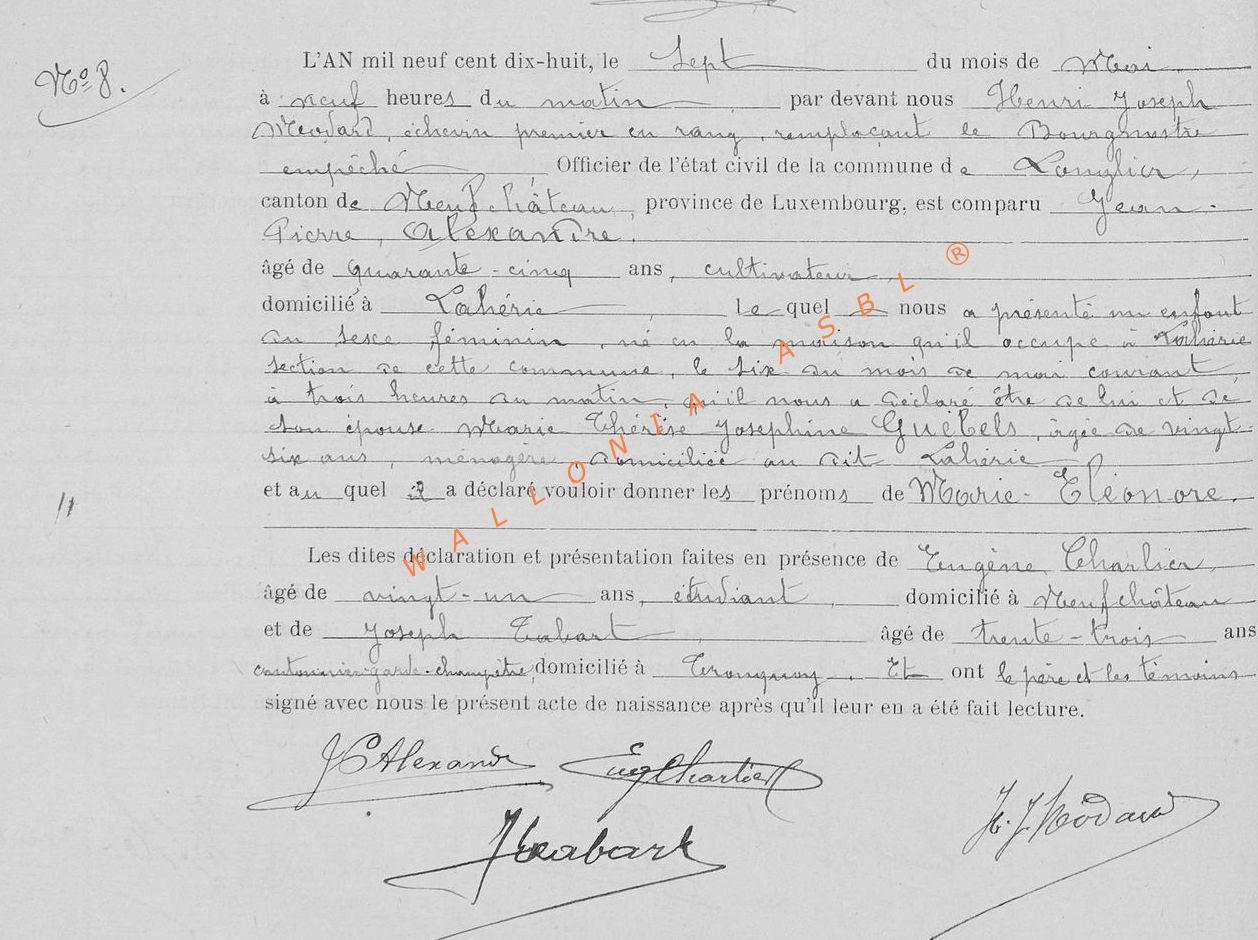 L'AN mil neuf cent dix-huit, le Sept du mois de Mai
N° 8.
à neuf heures du matin, par devant nous Henri Joseph
Médard, échevin premier en rang, remplaçant le Bourgmestre
empêché, Officier de l'état civil de la commune de Longlier,
canton de Neufchâteau, province de Luxembourg, est comparu Jean-
Pierre, Alexandre,
âgé de quarante-cinq ans, cultivateur,
domicilié à Lahérie Le quel nous a présenté un enfant
du sexe féminin, né en la maison qu'il occupe à Lahérie
section de cette commune, le six du mois de mai courant,
à trois heures du matin, qu'il nous a déclaré être de lui et de
son épouse Marie Thérèse Josephine Guebels, âgée de vingt-
six ans, ménagère, domiciliée au dit Lahérie
et au quel il a déclaré vouloir donner les prénoms de Marie-Eléonore.
Les dites déclaration et présentation faites en présence de Eugène Charlier,
âgé de vingt-un ans, étudiant, domicilié à Neufchâteau
et de Joseph Tabart, âgé de trente-trois ans
cantonnier-garde-champêtre, domicilié à Tronquoy. Et ont le père et les témoins
signé avec nous le présent acte de naissance après qu'il leur en a été fait lecture.
JP Alexandre Eug Charlier
J Tabart H. J. Médard
WALLONIA ASBL ®